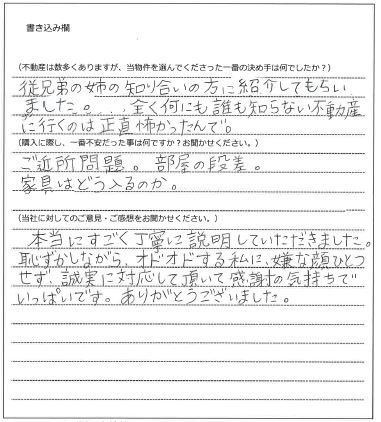 書き込み欄
(不動産は数多くありますが、当物件を選んでくださった一番の決め手は何でしたか?)
従兄弟の姉の知り合いの方に紹介してもらい
ました。...全く何にも誰も知らない不動産
に行くのは正直怖かったんで。
(購入に際し、一番不安だった事は何ですか?お聞かせください。)
ご近所問題。部屋の段差。
家具はどう入るのか。
(当社に対してのご意見・ご感想をお聞かせください。)
本当にすごく丁寧に説明していただきました。
恥ずかしながら、オドオドする私に、嫌な顔ひとつ
せず、誠実に対応して頂いて感謝の気持ちで
いっぱいです。ありがとうございました。